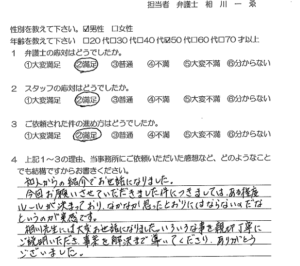 担当者 弁護士 相川 一
性別を教えて下さい。☑男性 □女性
年齢を教えて下さい □20代□30代□40代☑50代□60代□70才以上
1 弁護士の応対はどうでしたか。
①大変満足 ②満足 ③普通 ④不満 ⑤大変不満 ⑥分からない
2 スタッフの応対はどうでしたか。
①大変満足 ②満足 ③普通 ④不満 ⑤大変不満 ⑥分からない
3 ご依頼された件の進め方はどうでしたか。
①大変満足 ②満足 ③普通 ④不満 ⑤大変不満 ⑥分からない
4 上記1~3の理由、当事務所にご依頼いただいた感想など、どのようなこと
でも結構ですからお書きください。
知人からの紹介でお世話になりました。
今回お願いさせていただきました件につきましては、ある程度
ルールが決まっており、なかなか思ったとおりにはならないんだな
というのが実感です。
相川先生には大変お世話になりました。いろいろな事を親切丁寧に
ご説明いただき、事案を解決まで導いてくださり、ありがとう
ございました。